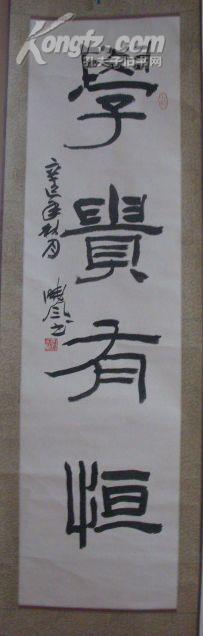 Kongfz.com
孔夫子旧书网
學貴有恒
辛巳年秋月